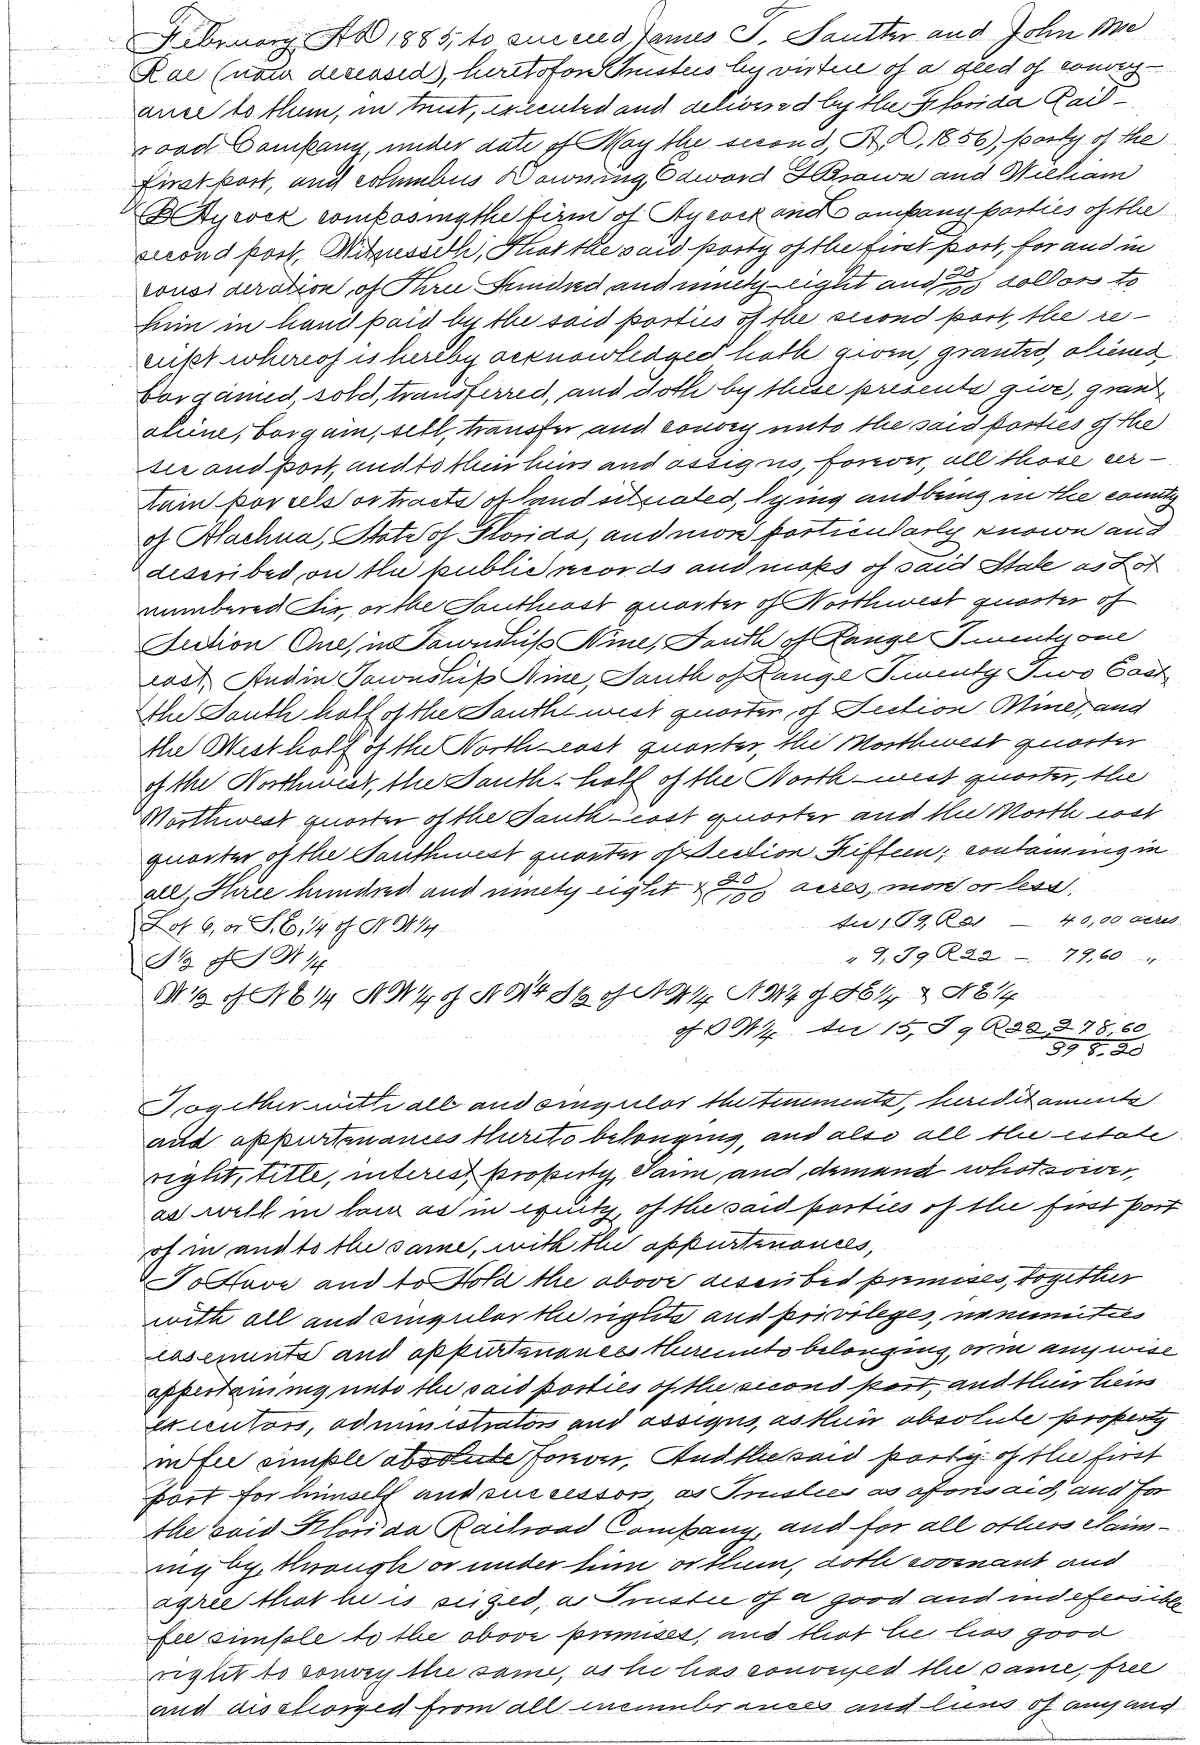 February A.D. 1885, to succeed James T. Soutter and John Mc
Rae (now deceased), heretofore Trustees by virtue of a deed of convey-
ance to them, in trust, executed and delivered by the Florida Rail-
road Company, under date of May the second, A.D. 1856), party of the
first part, and Columbus Downing, Edward G Brown and William
B Aycock composing the firm of Aycock and Company parties of the
second part. Witnesseth, That the said party of the first part, for and in
consideration of Three Hundred and ninety-eight and 20/100 dollars to
him in hand paid by the said parties of the second part, the re-
ceipt whereof is hereby acknowledged hath given, granted, aliened,
bargained, sold, transferred, and doth by these presents give, grant,
aliene, bargain, sell, transfer and convey unto the said parties of the
second part, and to their heirs and assigns, forever, all those cer-
tain parcels or tracts of land situated, lying and being in the county
of Alachua, State of Florida, and more particularly known and
described on the public records and maps of said State as Lot
numbered Six, or the Southeast quarter of Northwest quarter of
Section One, in Township Nine, South of Range Twenty one
east, And in Township Nine, South of Range Twenty Two East
the South half of the South-west quarter of Section Nine, and
the West half of the North-east quarter, the Northwest quarter
of the Northwest, the South-half of the North-west quarter, the
Northwest quarter of the South-east quarter and the North east
quarter of the Southwest quarter of Section Fifteen; containing in
all, Three hundred and ninety eight & 20/100 acres, more or less.
Lot 6, or S.E. 1/4 of N W 1/4 Sec 1, T9, R21 — 40,00 acres
S 1/2 of S W 1/4 " 9, T9 R22 — 79,60 "
W 1/2 of N E 1/4 N W 1/4 of N W 1/4 S 1/2 of N W 1/4 N W 1/4 of S E 1/4 & N E 1/4
of S W 1/4 Sec 15, T 9 R 22, 278,60
398.20
Together with all and singular the tenements, hereditaments
and appurtenances thereto belonging, and also all the estate
right, title, interest, property, claim and demand whatsoever,
as well in law as in equity, of the said parties of the first part
of in and to the same, with the appurtenances,
To Have and to Hold the above described premises, together
with all and singular the rights and privileges, immunities
easements and appurtenances thereunto belonging, or in any wise
appertaining unto the said parties of the second part, and their heirs
executors, administrators and assigns, as their absolute property
in fee simple absolute forever, And the said party of the first
part for himself and successors, as Trustees as aforesaid, and for
the said Florida Railroad Company, and for all others claim-
ing by, through or under him or them, doth covenant and
agree that he is seized, as Trustee of a good and indefeasible
fee simple to the above premises, and that he has good
right to convey the same, as he has conveyed the same, free
and discharged from all incumbrances and liens of any and